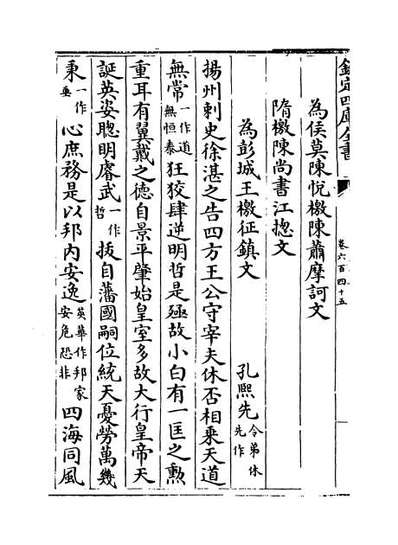 欽定四庫全書
卷六百四十五
為侯莫陳悅檄陳蕭摩訶文
隋檄陳尚書江揔文
為彭城王檄征鎮文　孔熙先令弟休先作
揚州刺史徐湛之告四方王公守宰夫休否相乗天道
無常一作道無恒泰狂狡肆逆明哲是殛故小白有一匡之勲
重耳有翼戴之德自景平肇始皇室多故大行皇帝天
誕英姿聰明睿武一作哲拔自藩國嗣位統天憂勞萬幾
秉一作垂心庶務是以邦内安逸英華作邦家安危恐非四海同風